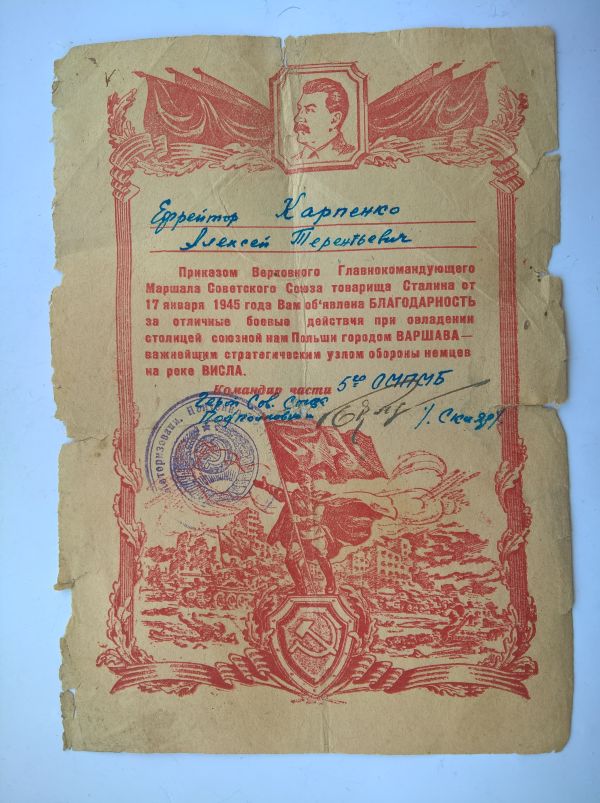 Ефрейтор Карпенко
Алексей Терентьевич
Приказом Верховного Главнокомандующего
Маршала Советского Союза товарища Сталина от
17 января 1945 года Вам об'явлена БЛАГОДАРНОСТЬ
за отличные боевые действия при овладении
столицей союзной нам Польши городом ВАРШАВА—
важнейшим стратегическим узлом обороны немцев
на реке ВИСЛА.
Командир части 5
Герой Сов. Союза
Подполковник